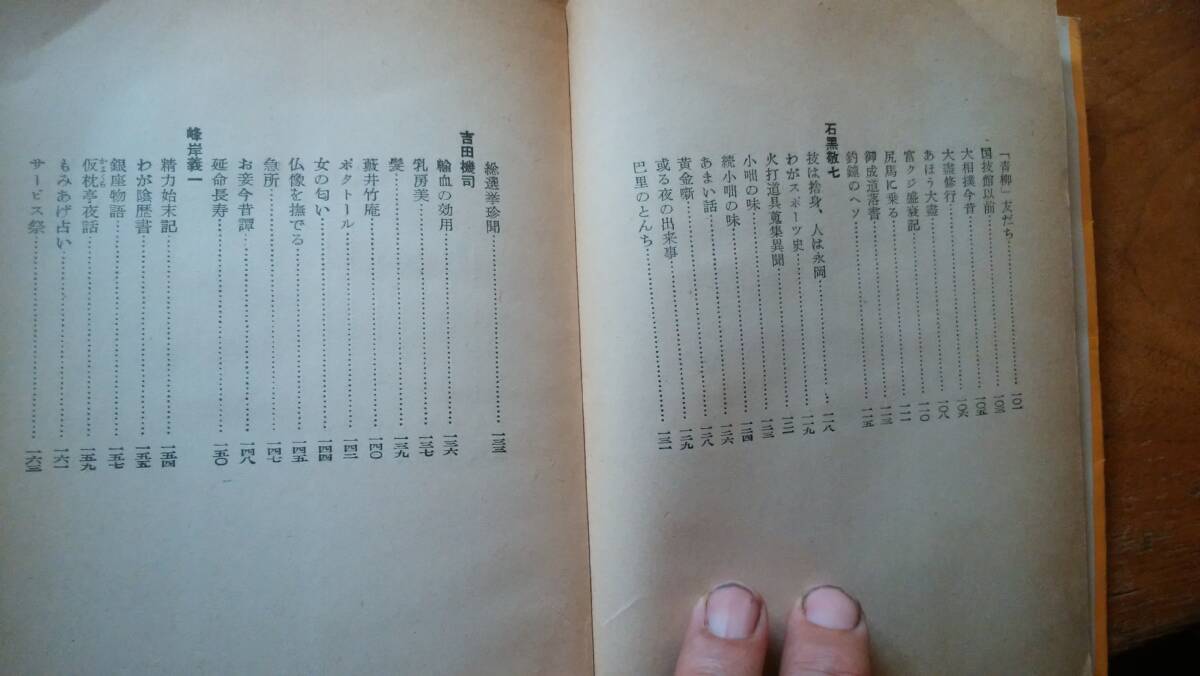 「青柳」友だち……一〇一
国技館以前……一〇三
大相撲今昔……一〇五
大盡修行……一〇六
あほう大盡……一〇八
富クジ盛衰記……一一〇
尻馬に乗る……一一一
御成道落書……一一三
釣鐘のヘソ……一一五
石黒敬七
技は捨身、人は永岡……一一八
わがスポーツ史……一一九
火打道具蒐集異聞……一二一
小咄の味……一二三
続小咄の味……一二四
あまい話……一二六
黄金噺……一二八
或る夜の出来事……一二九
巴里のとんち……一三一
総選挙珍聞……一三三
吉田機司
輸血の効用……一三六
乳房美……一三七
髪……一三九
藪井竹庵……一四〇
ボクトール……一四二
女の匂い……一四四
仏像を撫でる……一四五
急所……一四七
お妾今昔譚……一四八
延命長寿……一五〇
峰岸義一
精力始末記……一五四
わが陰歴書……一五五
銀座物語……一五七
仮枕亭夜話……一五九
もみあげ占い……一六一
サービス祭……一六三